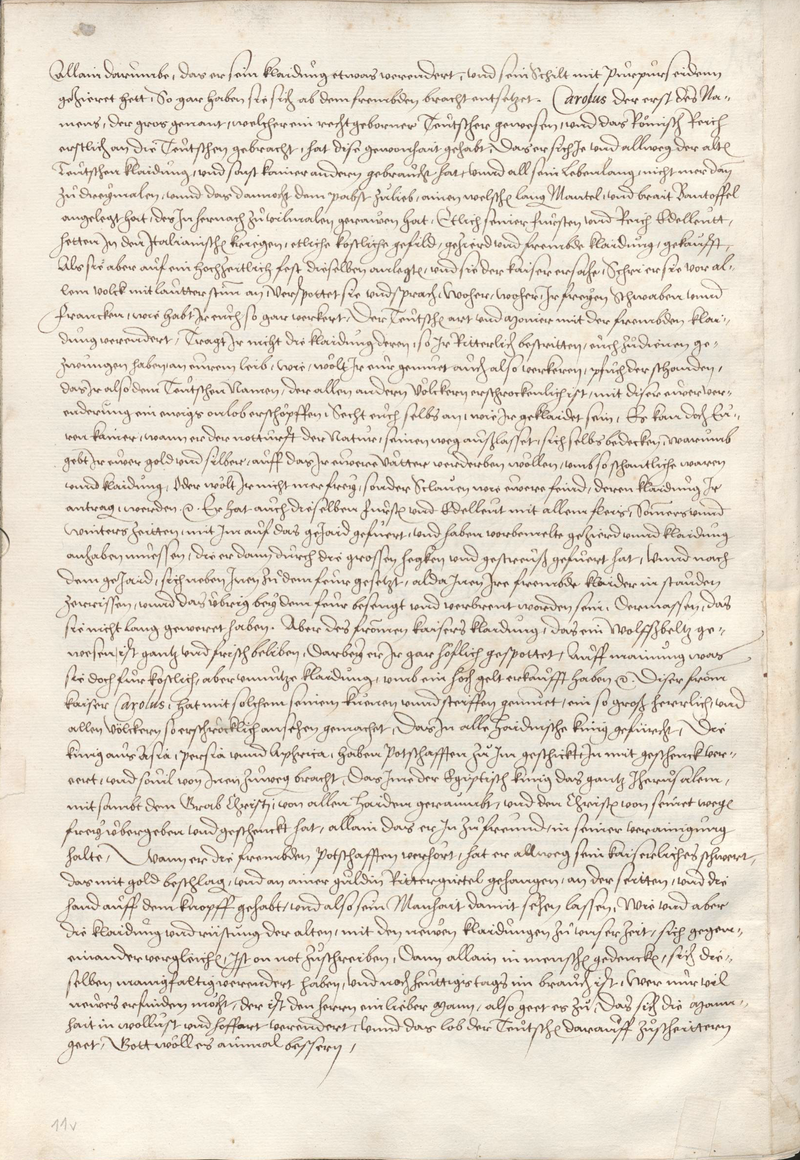 Allain darumbe, das er sein klaidung etwas verendert, und sein Schilt mit Purpurseidenn
gezieret hett, So gar haben sie sich ab dem frembden bracht entsetzet. Carolus der erst des Na-
mens, der gros genant, welcher ein recht geborner Teütscher gewesen, und das Römisch Reich
erstlich an die Teütschen gebracht, hat dise gewonhait gehabt, Das er sich Je und allweg der alte
Teütschen klaidung, und sonst kainer anderen gebraucht hat, unnd all sein Lebenlang, nicht mer dan
zu dreymalen, unnd das dannocht dem Pabst zulieb, ainen welsche lang Mantel, und brait Pantoffel
angelegt hat, des In hernach zu vilmalen gerawen hat, Etlich seiner Fürsten und Reich Edelleutt,
hetten In den Italianische kriegen, etliche köstliche gefild, gezierd und frembde klaidung, gekaufft,
Als sie aber auf ein Hochzeitlich fest dieselben anlegte, und sie der kaiser ersahe, Schri er sie vor al-
lem volck mit lautter stim an, Verspottet sie und sprach, Woher, woher, Ir freyen Schwaben unnd
Francken, wie habt Ir euch so gar verkert, Der Teütsche art und manier mit der frembden klai-
dung verendert, Tragt Ir nicht die klaidung deren, so Ir Ritterlich bestritten, euch zudienen ge-
zwungen haben, an eurem leib, wie, wölt Ir eur gemuet auch also verkeren, pfuch der schanden,
das Ir also dem Teütschen Namen, der allen andern Völckern erschrockenlich ist, mit diser ewer ver-
enderung ein ewigs onlob erschöpffen, Secht euch selbs an, wie Ir geklaidet sein, Es kan doch Eu-
ren kainer, wann er der notturfft der Natur, seinen weg auszlasset, sich selbs bedecken, warumb
gebt Ir ewer gold und silber, auff das Ir ewere Vätter verderben wöllen, umb so schantliche waren
unnd klaidung, Oder wölt Ir nicht mer frey, sonder Sclaven wie ewere feind, deren klaidung Ir
antrag, werden &. Er hat auch dieselben Fürste und Edelleut mit allem fleis, Somers unnd
winters zeitten, mit Im auf das gejaid gefuert, und haben vorbemelte gezierd unnd klaidung
anhaben muessen, die er dann durch die grossen hecken und gestreüß gefuert hat, Unnd nach
dem gejaid, sich neben Inen zu dem feur gesetzt, alda Inen Ire frembde klaider in stauden
zerrissen, unnd das übrig bey dem feur besengt und verbrent worden sein, Dermassen, das
sie nicht lang geweret haben. Aber des fromen kaisers klaidung, das ein Wolffßbeltz ge-
wesen, ist gantz und frisch beliben, Darbey er Ir gar höflich gespottet, Auff mainung was
sie doch für köstlich, aber unnutze klaidung, umb ein hoch gelt erkaufft haben &. Diser from
kaiser Carolus, hat mit solchem seinem kuenen unnd steiffen gemuet, ein so groß herrlich, und
allen völckern so erschröcklich ansehen gemachet, Das In alle haidnische künig gefürcht, Die
künig aus Asia, Persia unnd Aphrica, haben Potschafften zu Im geschickt, In mit geschenck ver-
eert, und sovil von Inen zuweg bracht, Das Ime der Egiptisch künig das gantz Jherusalem,
mit sambt dem Grab Christi, von allen Haiden geraumbt, und den Christe von seinet wege
frey übergeben und geschenckt hat, allain das er In zu freund, in seiner verainigung
halte, Wann er die frembden Potschafften verhört, hat er allweg sein kaiserliches schwert,
das mit gold beschlag, und an ainer guldin Rittergürtel gehangen, an der seitten, und die
hand auff dem knopff gehabt, und also sein Manhait damit sehen lassen, Wie und aber
die klaidung und rüstung der alten, mit den newen klaidungen zu unser zeit, sich gegen-
einander vergleiche, Ist on not zuschreiben, Dann allain in mensche gedencke, sich die-
selben manigfaltig verendert haben, und noch heuttigstags im brauch ist, Wer nur vil
newes erfinden möcht, der ist den herrn ein lieber Mann, also geet es zu, Das sich die Mann-
hait in wollust und hoffart verendert, Unnd das lob der Teütsche darauff zuscheittern
geet, Gott wöll es ainmal bessern,
11v